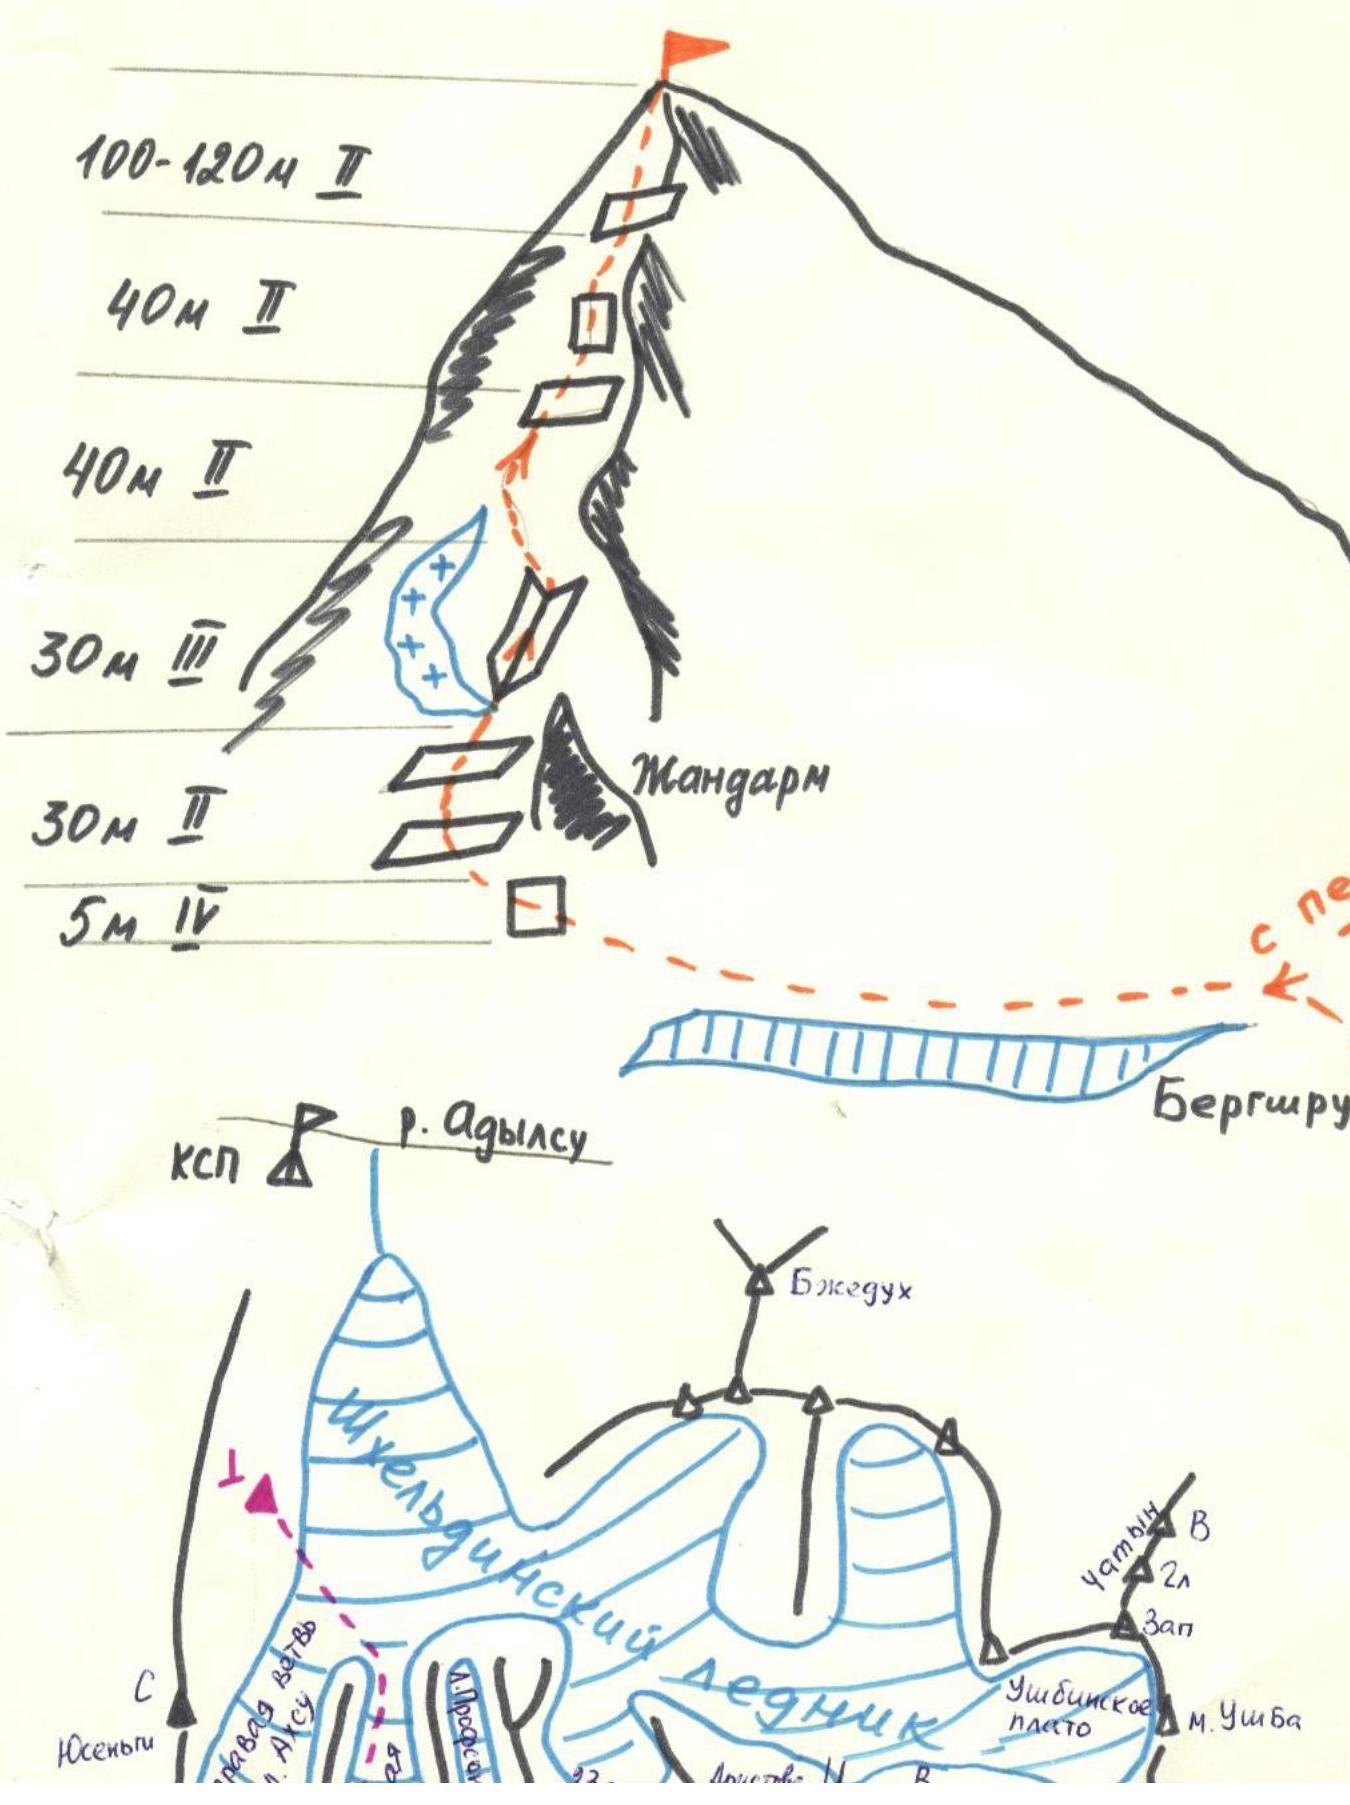 100-120м II
40м II
40м II
30м III
Жандарм
30м II
5м IV
с пе
Бергшру
р. Адылсу
КСП
Бжедух
Шхельдинский ледник
1
Чатын
В
Гл
Зап
Ушбинское
плато
м. Ушба
С
Юсеньги
равая ветвь
л. Аксу
ая
л. Профсою
В